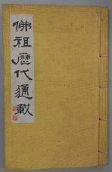 佛祖歷代通載